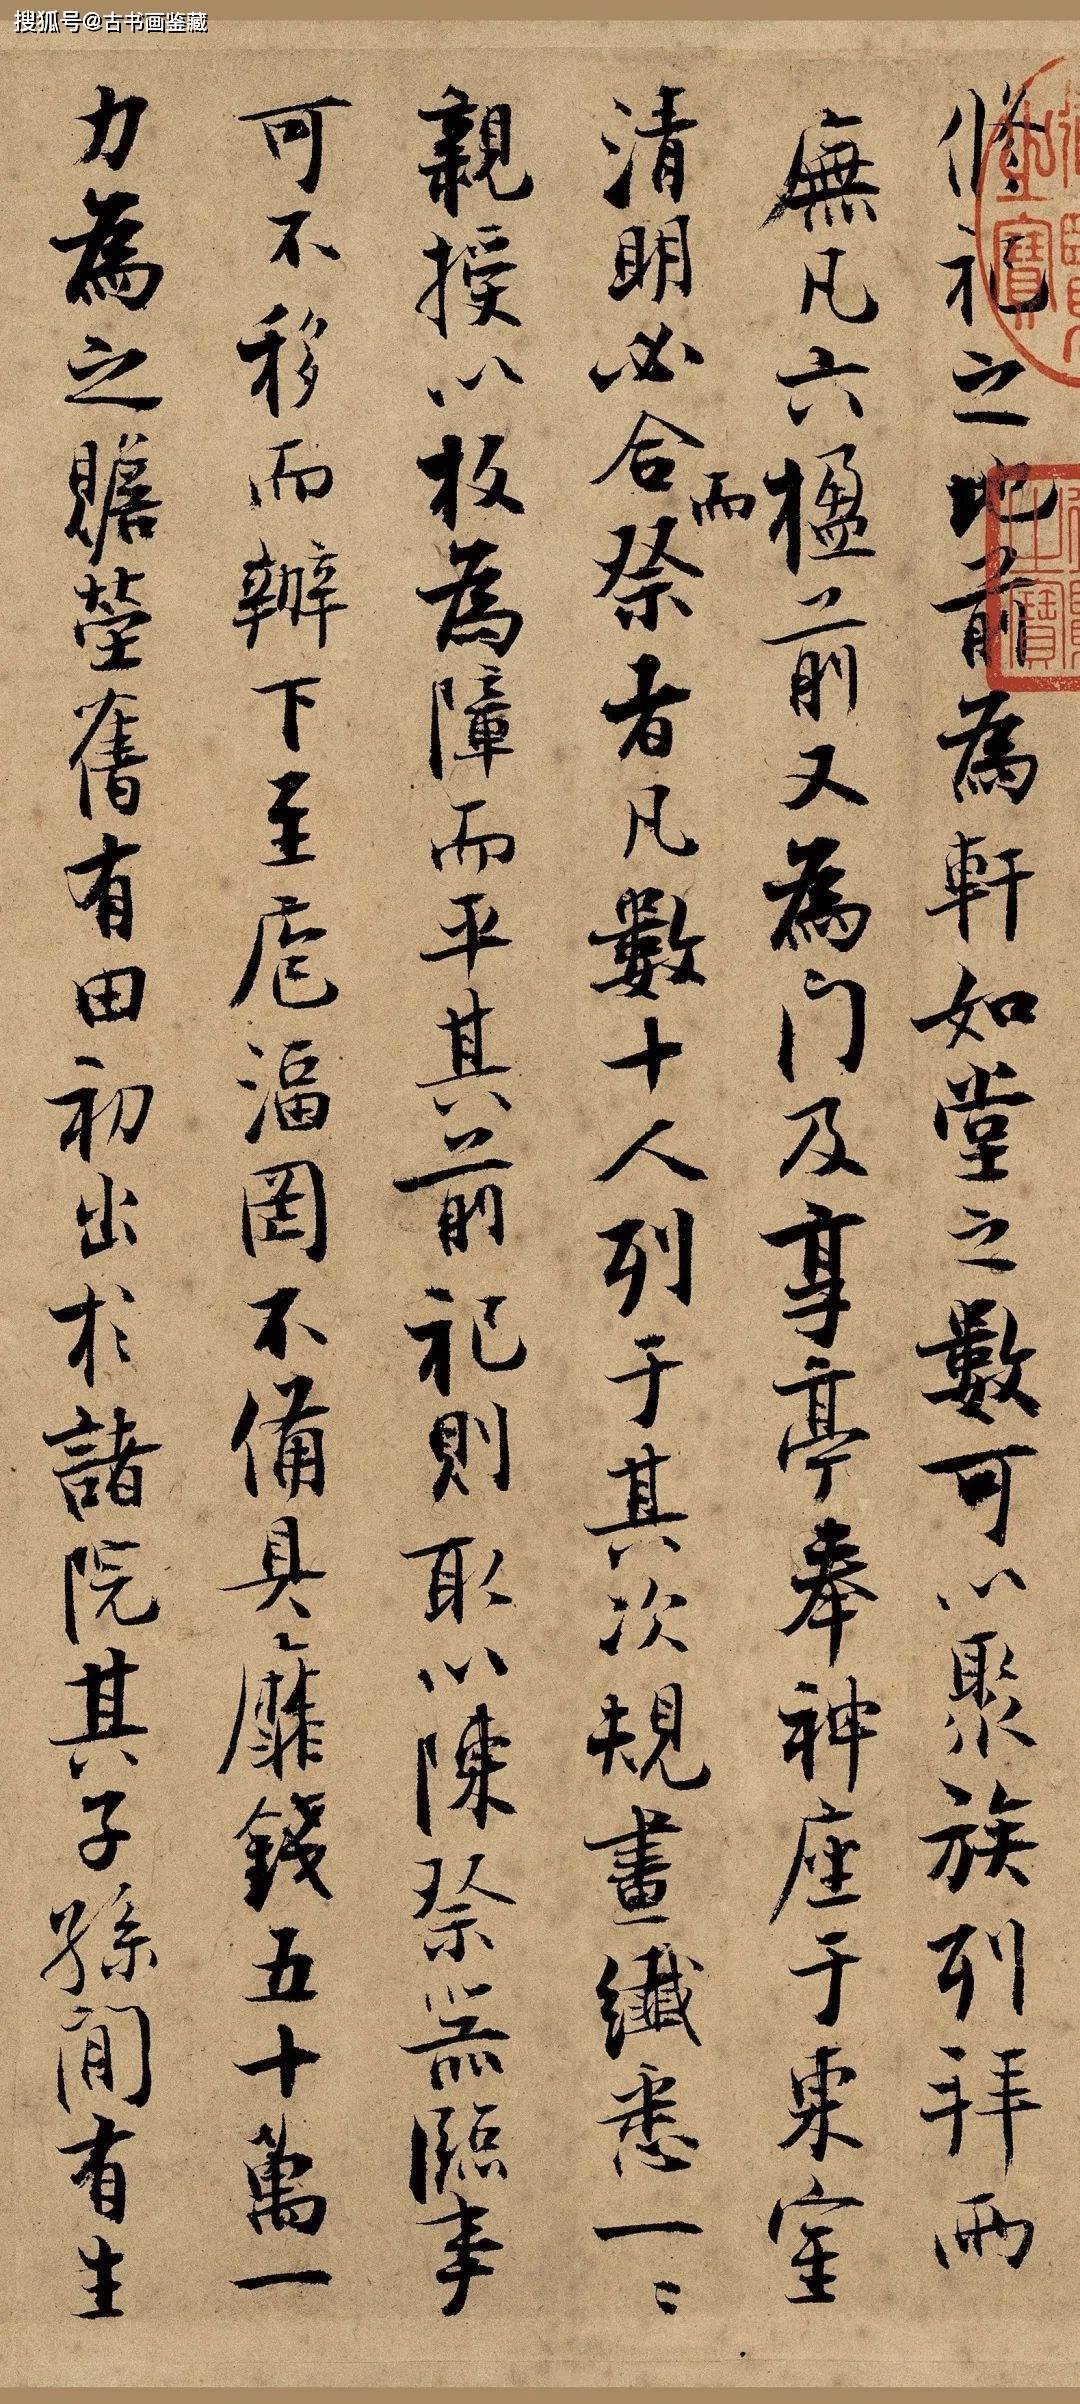 搜狐号@古书画鉴藏
脩祀之地前為軒如堂之數可以聚族列拜兩
廡凡六楹前又為門及享亭奉神座于東室
清明必合而祭者凡數十人列于其次規畫纖悉一〻
親授以板為障而平其前祀則取以陳祭器臨事
可不移而辦下至庖湢罔不備具靡錢五十萬一
力為之贍塋舊有田初出於諸院其子孫間有生